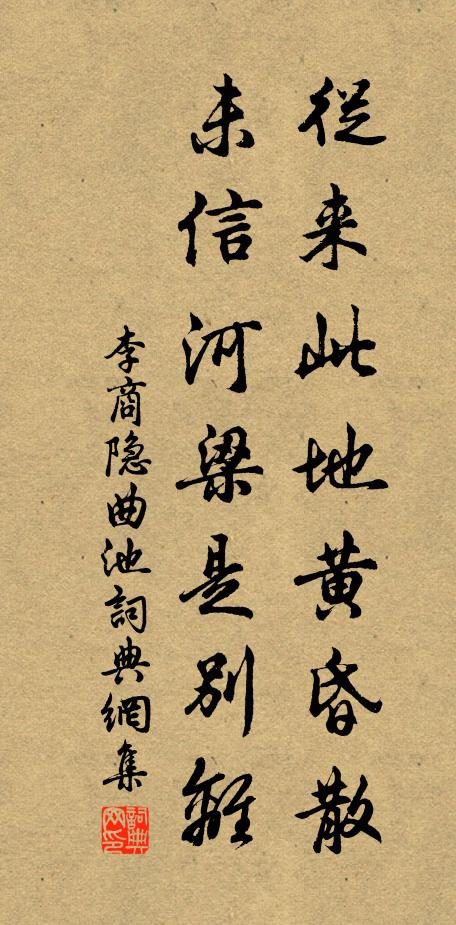 從来此地黄昏散
未信河梁是别離
李商隐曲池詞典網集
詞典網印